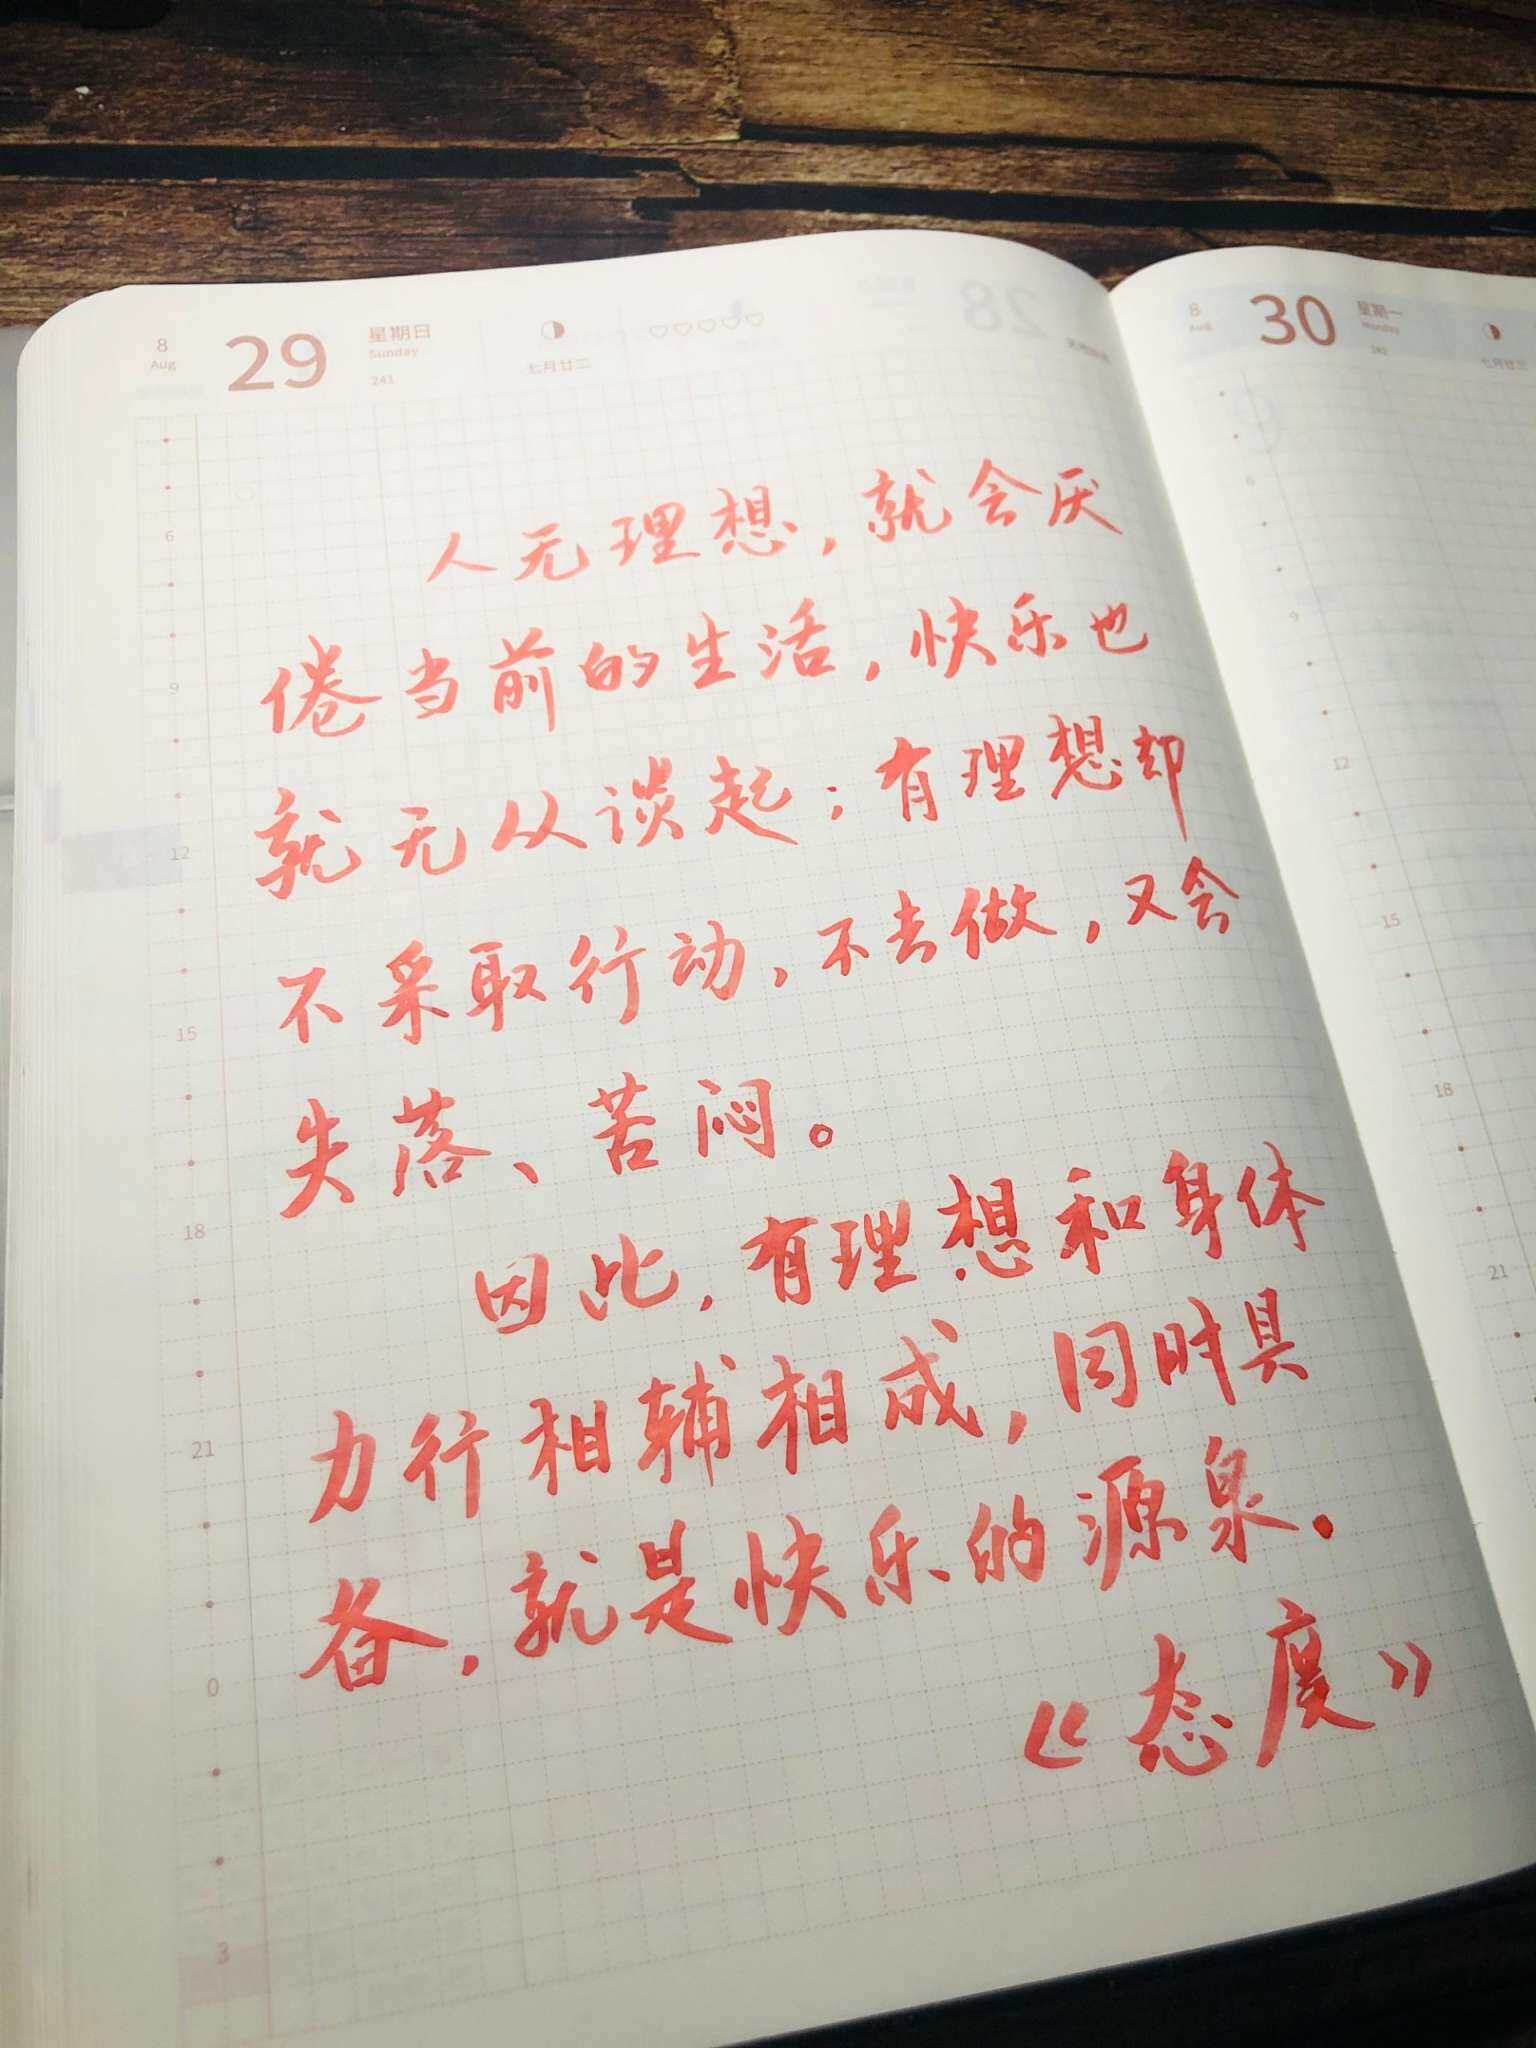 8 Aug 29 星期日 Sunday 241 七月廿二
8 Aug 30 星期一 Monday 242 七月廿三
人无理想，就会厌
倦当前的生活，快乐也
就无从谈起；有理想却
不采取行动，不去做，又会
失落、苦闷。
因此，有理想和身体
力行相辅相成，同时具
备，就是快乐的源泉.
《态度》
6
9
12
15
18
21
0
3
6
9
12
15
18
21